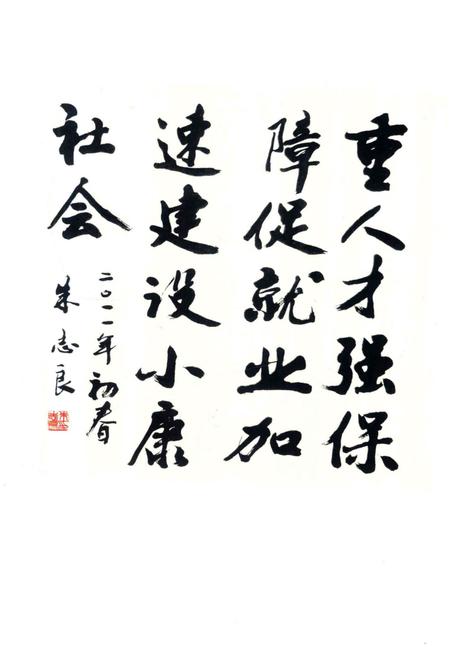 重人才强保
障促就业加
速建设小康
社会
二〇一一年初春
朱志良